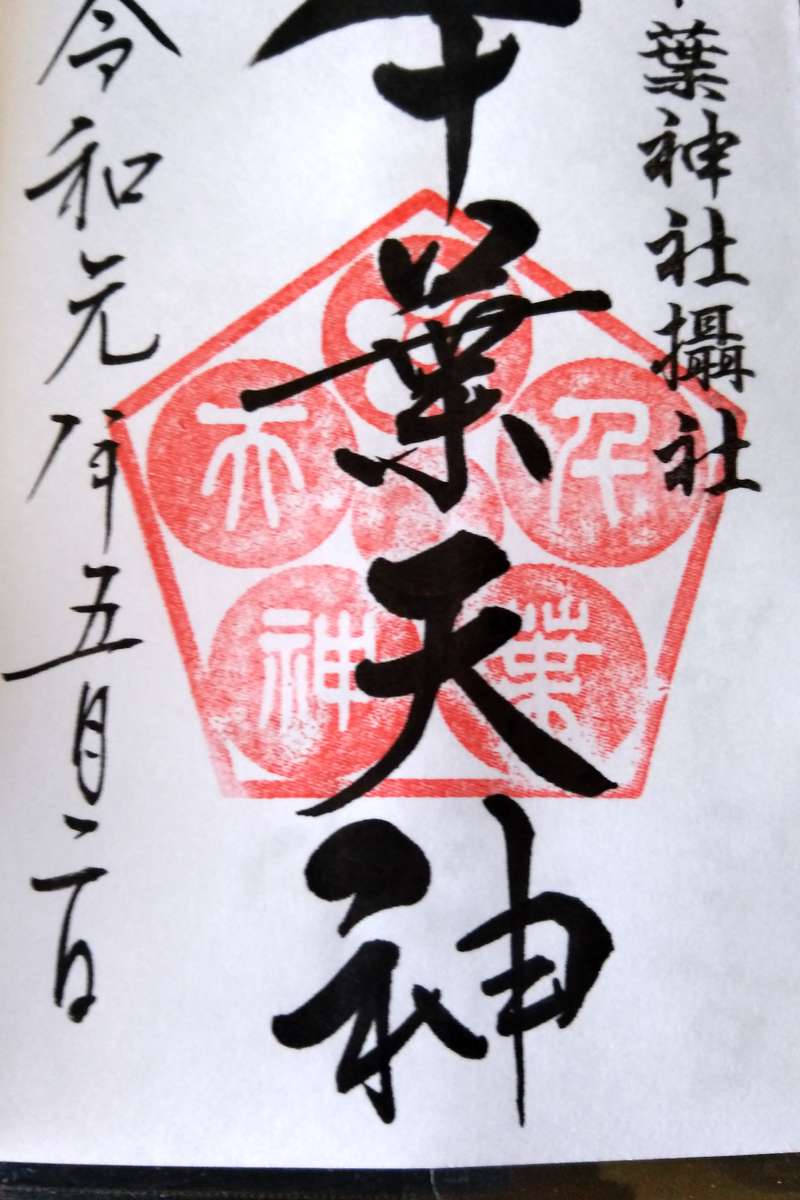 千葉神社攝社
千葉天神
令和元年五月二日
千葉天神